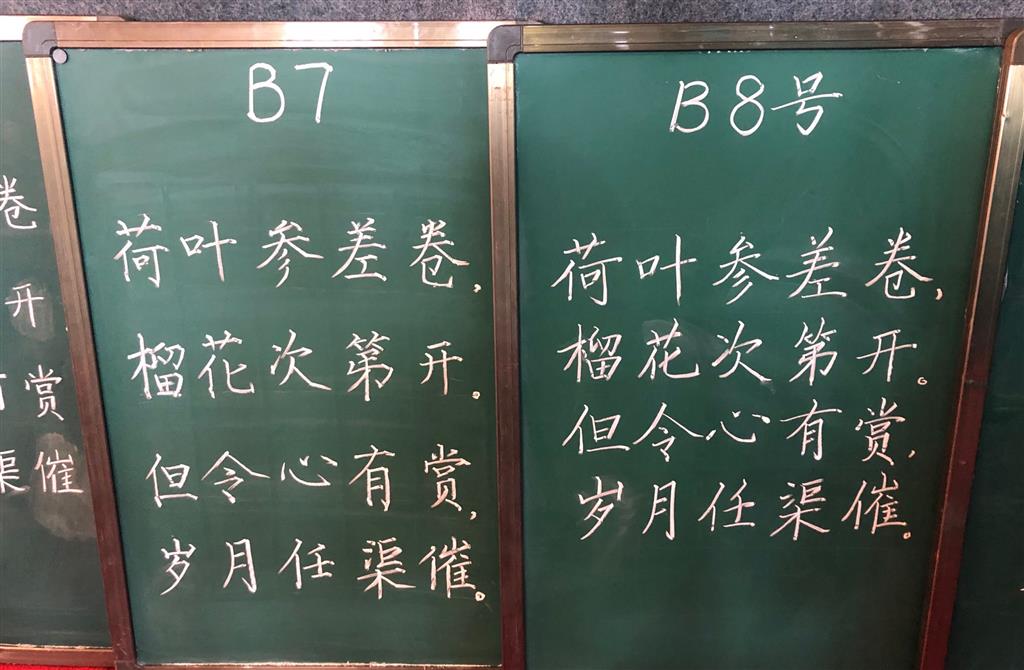 卷
开
赏
渠催
B7
荷叶参差卷,
榴花次第开。
但令心有赏,
岁月任渠催。
B8号
荷叶参差卷,
榴花次第开。
但令心有赏,
岁月任渠催。